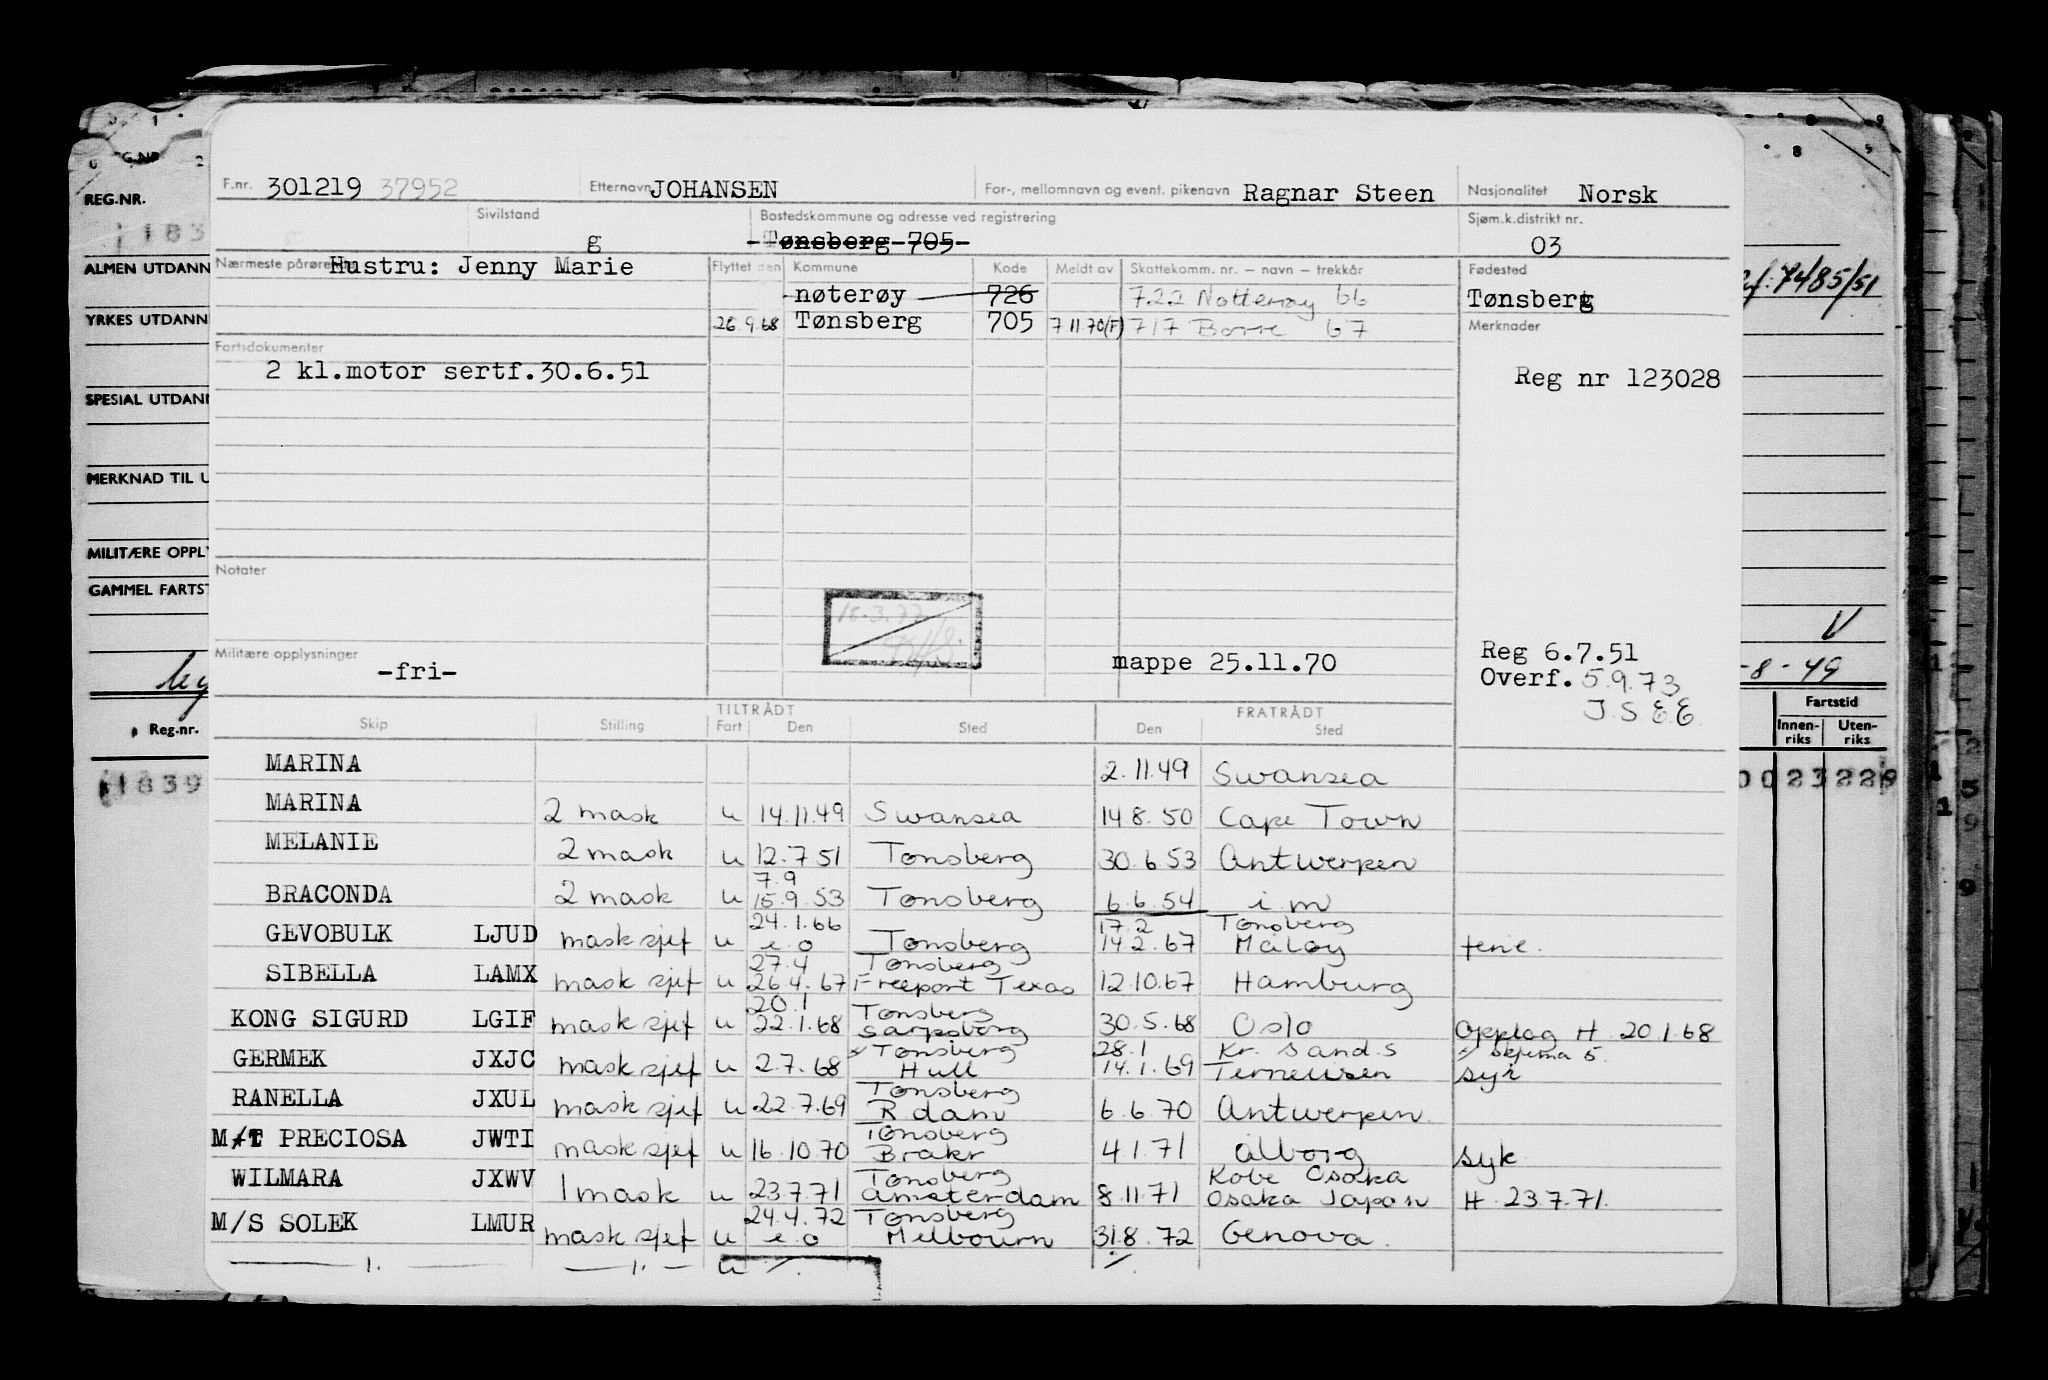 F.nr. 301219 37952 Etternavn JOHANSEN For-, mellomnavn og event. pikenavn Ragnar Steen Nasjonalitet Norsk
Sivilstand g Bostedskommune og adresse ved registrering Tønsberg 705 Sjøm.k.distrikt nr. 03
Hustru: Jenny Marie Flyttet den Kommune Kode Meldt av Skattekomm. nr. – navn – trekkår Fødested
nøterøy 726 722 Nøtterøy 66 Tønsberg
26.9.68 Tønsberg 705 7 11.70(F) 717 Borre 67 Merknader
Fartsdokumenter
2 kl.motor sertf.30.6.51 Reg nr 123028
Notater
18.3.77
Militære opplysninger -fri- mappe 25.11.70 Reg 6.7.51
Overf. 5.9.73
TILTRÅDT FRATRÅDT
Skip Stilling Fart Den Sted Den Sted
MARINA 2.11.49 Swansea
MARINA 2 mask u 14.11.49 Swansea 14.8.50 Cape Town
MELANIE 2 mask u 12.7 51 Tonsberg 30.6 53 Antwerpen
7.9
BRACONDA 2 mask u 15.9.53 Tonsberg 6.6.54 i m
24.1.66 17.2 Tonsberg
GEVOBULK LJUD mask sjef u e.o Tonsberg 14.2.67 Måløy ferie.
27.4 Tonsberg
SIBELLA LAMX mask sjef u 26.4.67 Freeport Texas 12.10.67 Hamburg
20.1 Tonsberg
KONG SIGURD LGIF mask sjef u 22.1.68 Sarpsborg 30.5.68 Oslo Opplag H 20 1.68
Tonsberg 28.1 Kr. sand.s skjema 5.
GERMEK JXJC mask sjef u 2.7.68 Hull 14.1.69 Terneusen syk
Tonsberg
RANELLA JXUL mask sjef u 22.7.69 R.dam 6.6.70 Antwerpen
Tonsberg
M/T PRECIOSA JWTI mask sjef u 16.10.70 Brake 4.1.71 Ålborg syk
Tonsberg Kobe Osaka
WILMARA JXWV 1 mask u 23.7.71 Amsterdam 8.11.71 Osaka Japan H. 23.7.71.
24.4.72 Tonsberg
M/S SOLEK LMUR mask sjef u e.o Melbourn 31.8.72 Genova.
REG.NR.
ALMEN UTDANN
YRKES UTDANN
SPESIAL UTDANN
MERKNAD TIL U
MILITÆRE OPPLY
GAMMEL FARTST
Reg.nr.
1839
7485/51
V
-8-49
Fartstid
Innen-riks Uten-riks